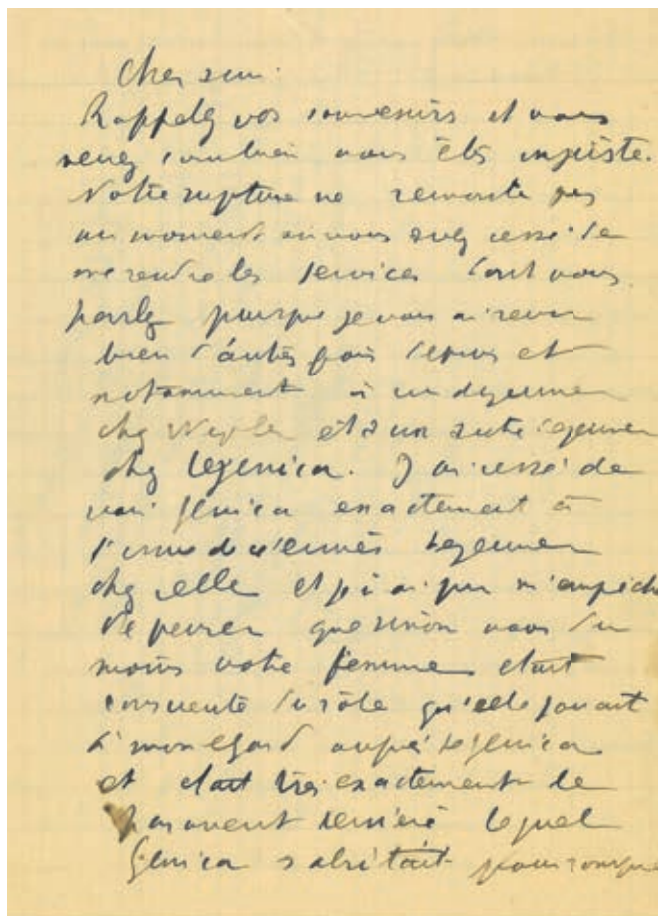 Cher ami:
Rappelez vos souvenirs et vous
verrez combien vous êtes injuste.
Notre rupture ne remonte pas
au moment où vous avez cessé de
me rendre les services dont vous
parlez puisque je vous ai revu
bien d'autres fois depuis et
notamment à un déjeuner
chez Wepler et à un autre déjeuner
chez Génica. J'ai cessé de
voir Génica exactement à
l'issue de ce déjeuner
chez elle et je n'ai pu m'empêcher
de penser que sinon vous du
moins votre femme était
consciente du rôle qu'elle jouait
à mon égard auprès de Génica
et était très exactement le
paravent derrière lequel
Génica s'abritait pour rompre